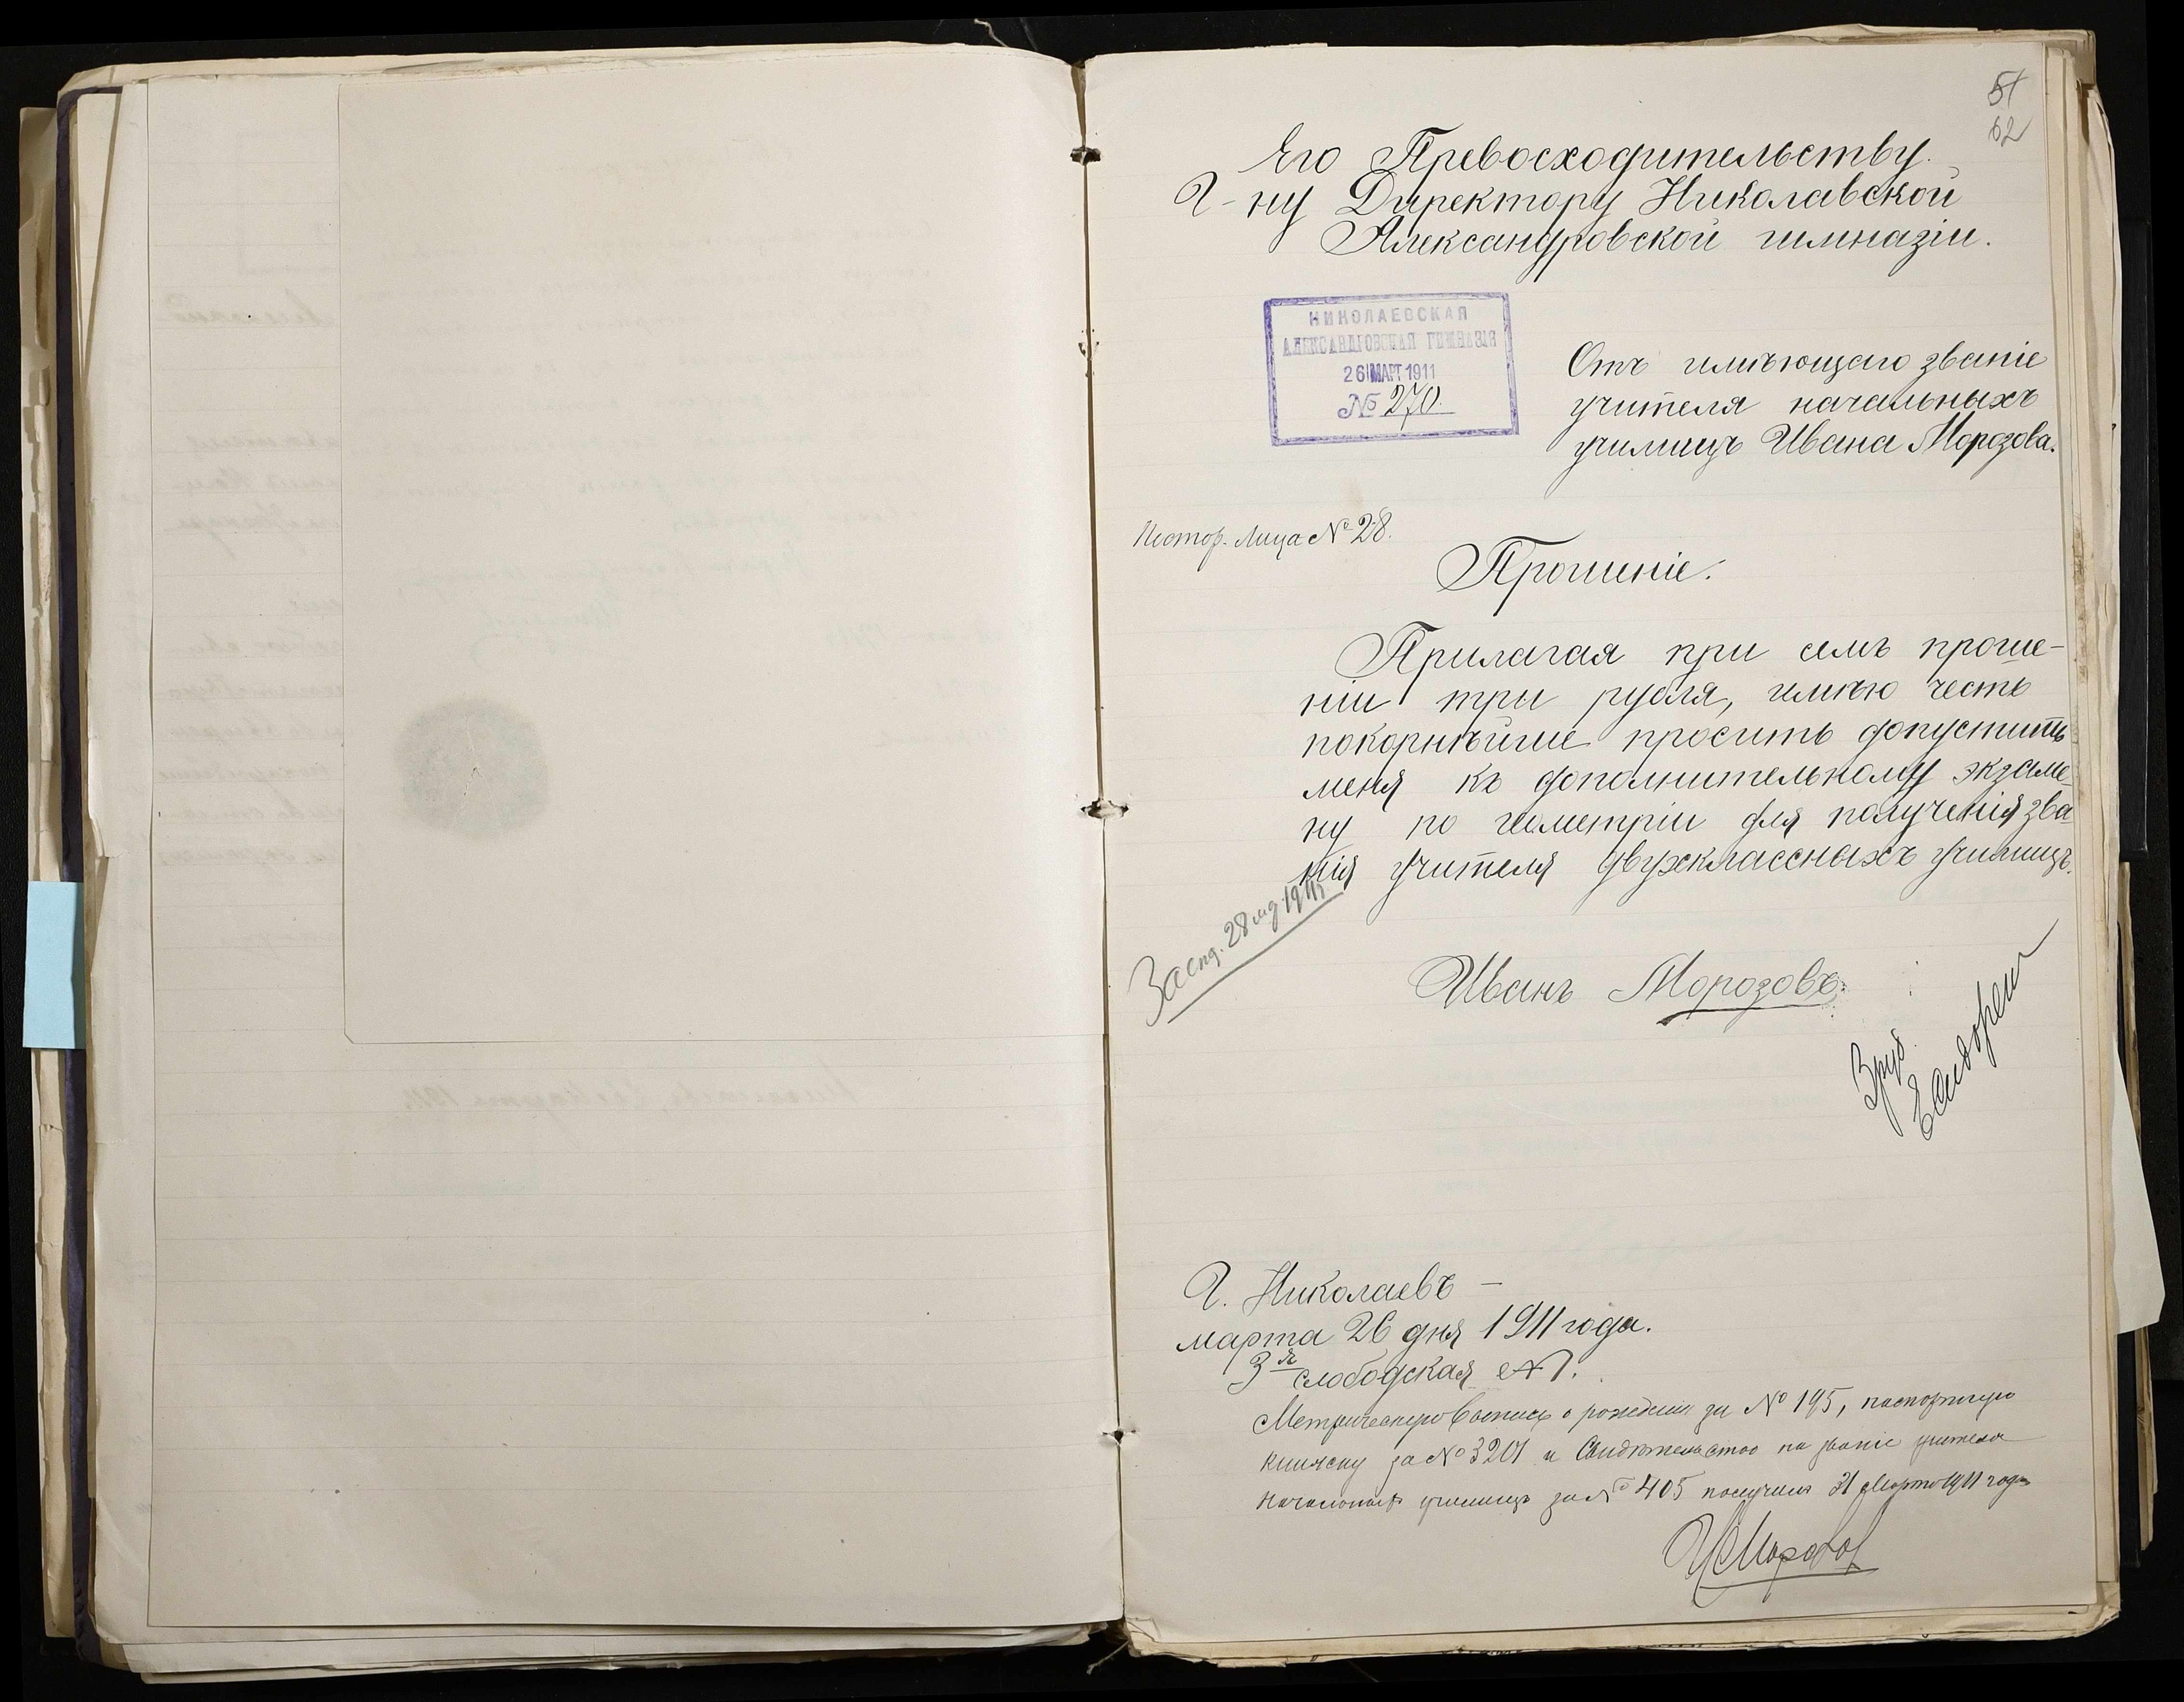 51
62
Его Превосходительству.
Г-ну Директору Николавской
Александровской гимназіи.
НИКОЛАЕВСКАЯ
АЛЕКСАНДРОВСКАЯ ГИМНАЗІЯ
26 МАРТ 1911
№ 270.
Отъ имѣющаго званіе
учителя начальныхъ
училищъ Ивана Морозова.
Постор. лица № 28.
Прошеніе.
Прилагая при семъ проше-
ніи три рубля, имѣю честь
покорнѣйше просить допустить
меня къ дополнительному экзаме
ну по геометріи для полученія зва
нія учителя двухклассныхъ училищъ.
28
Иванъ Морозовъ.
3 руб.
Г. Николаевъ —
марта 26 дня 1911 года.
3я слободская № 1.
Метрическую выпись о рожденіи за № 195, паспортную
книжку за № 3201 и Свидѣтельство на званіе учителя
начальныхъ училищъ за № 405 получилъ 31 Марта 1911 года
И Морозов